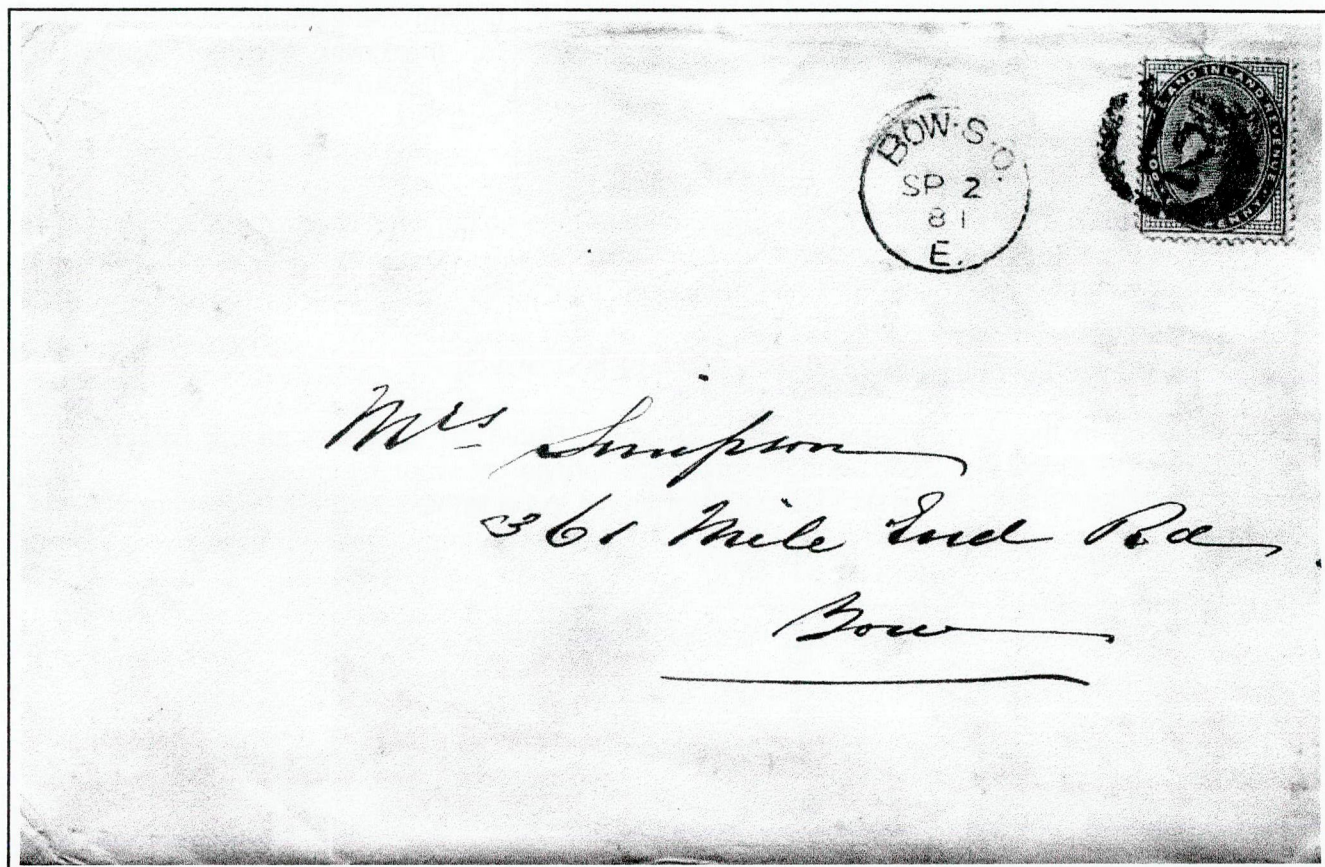 BOW·S.O.
SP 2
81
E.
AND INLAND REVENUE
PENNY
Mrs Simpson
361 Mile End Rd
Bow